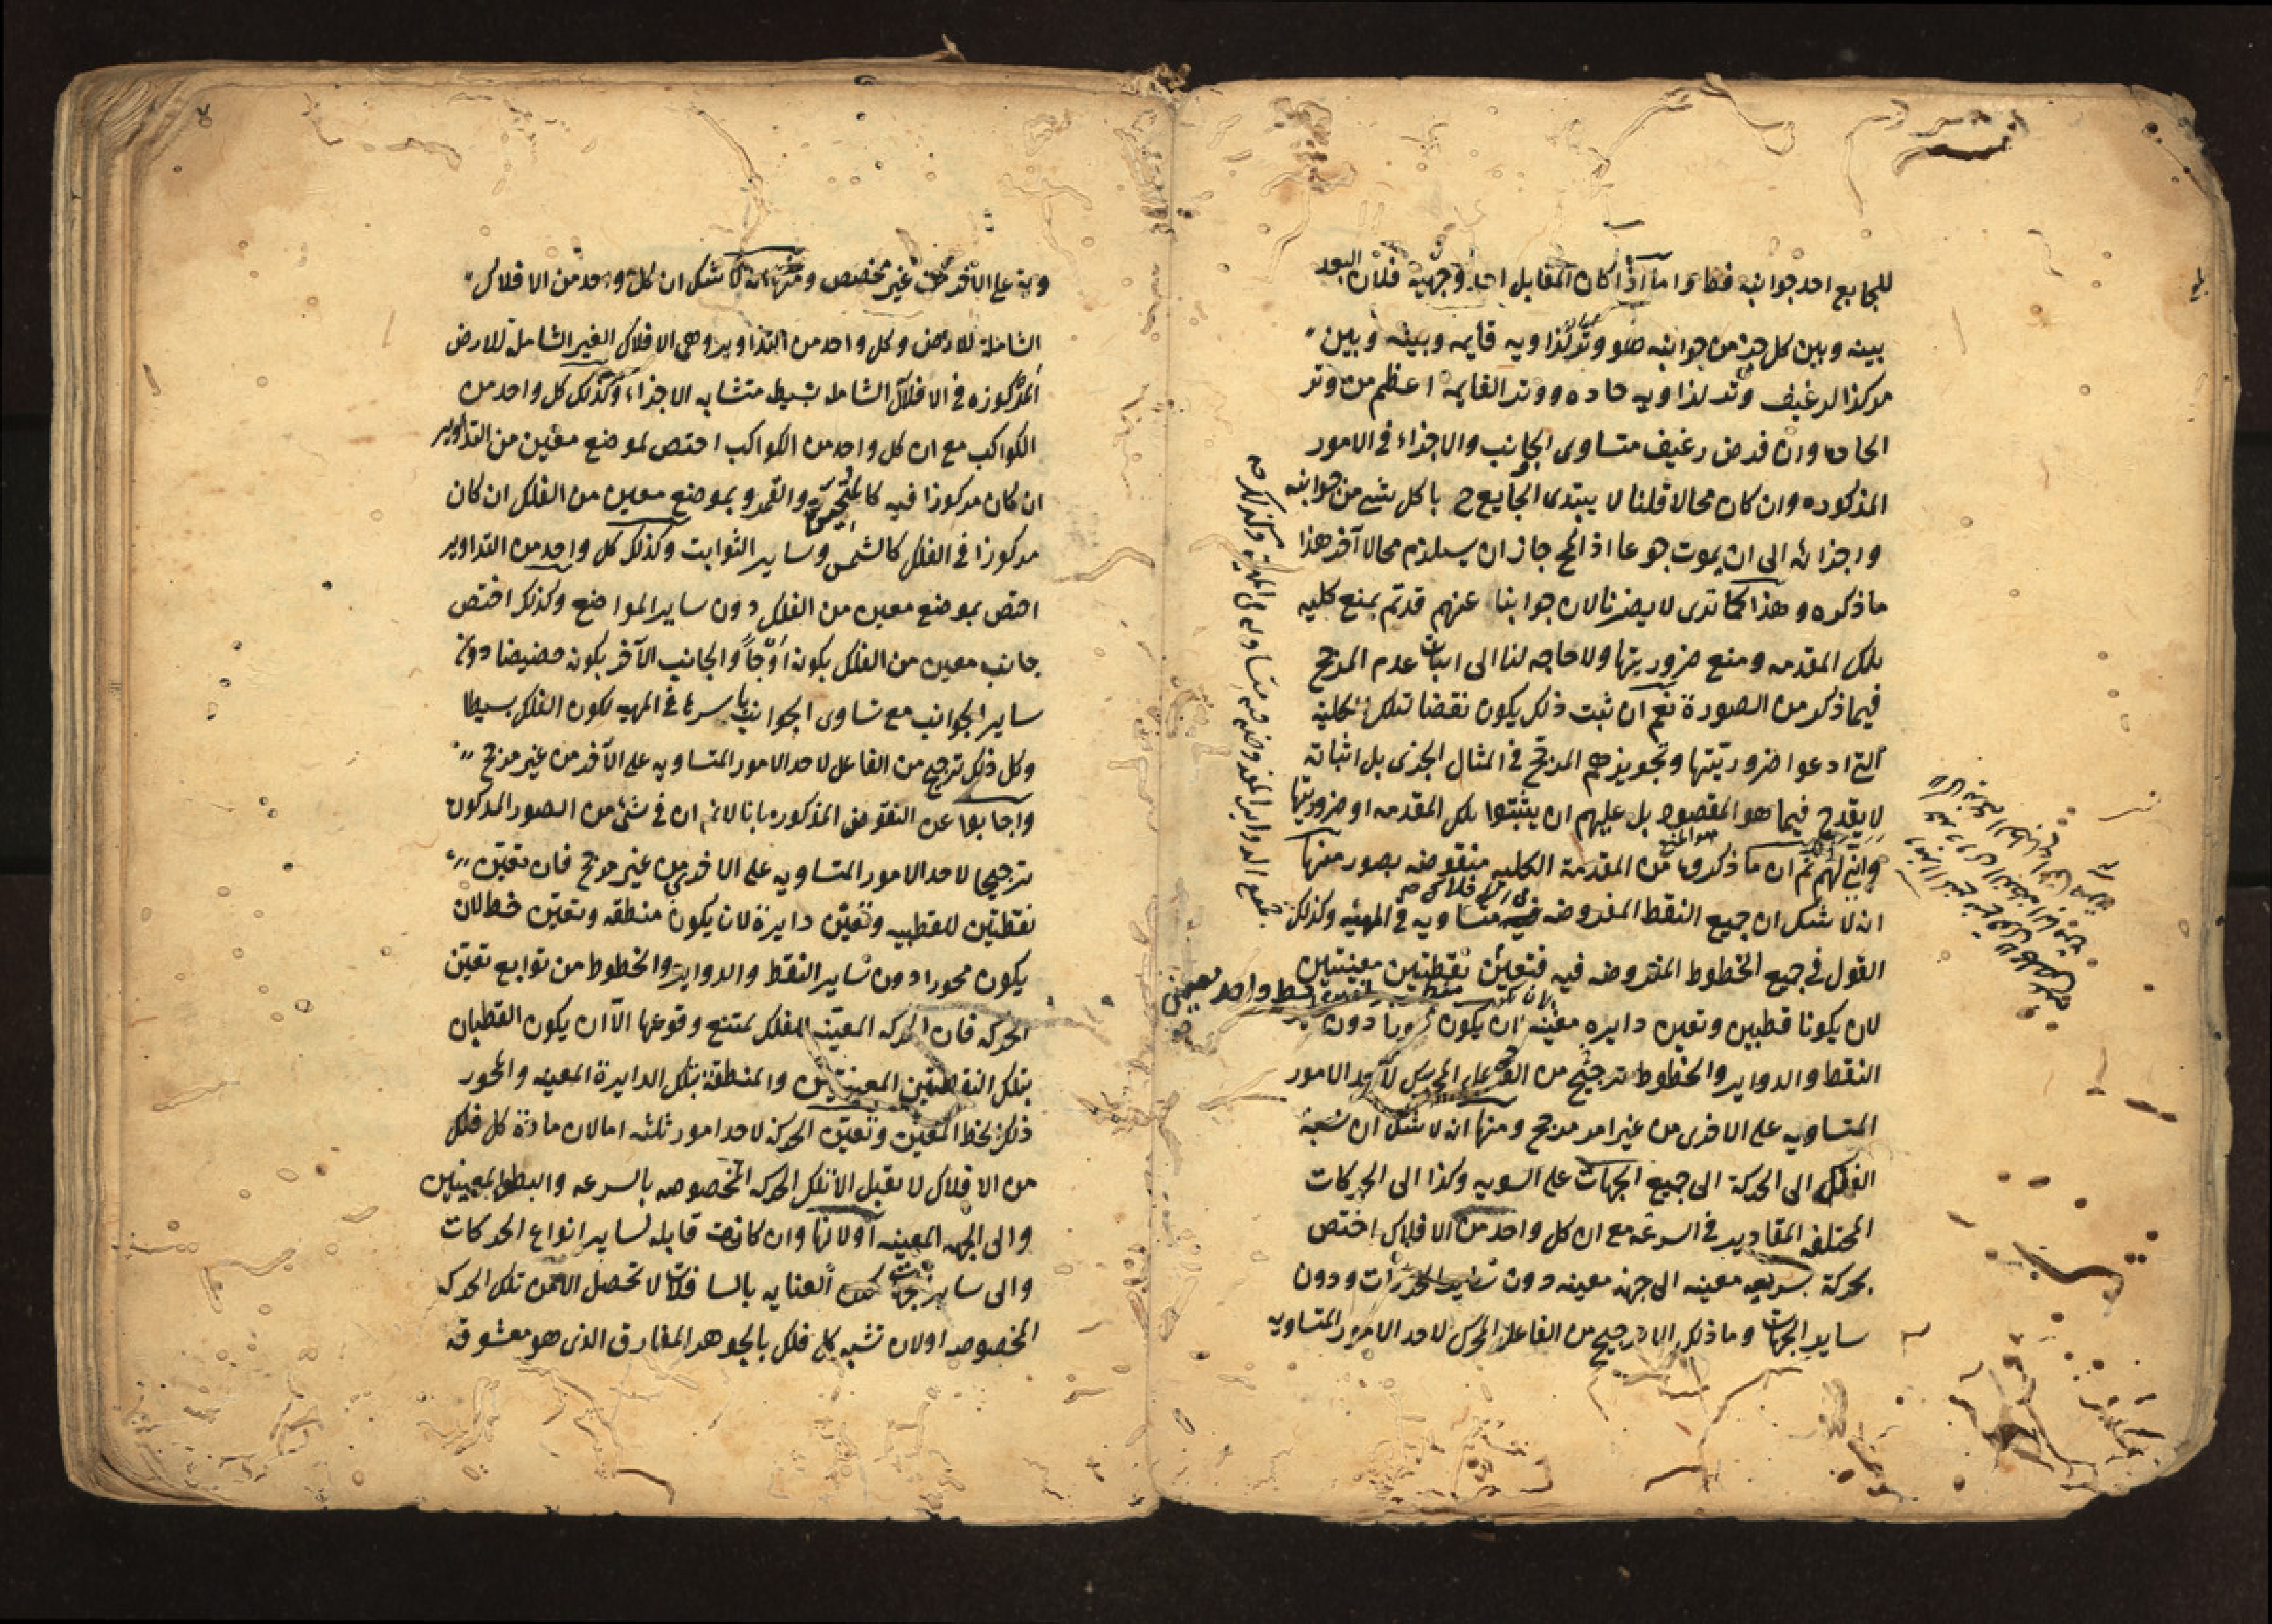 للجايع احد جوانبه فظ واما اذا كان المقابل احد وجهيه فلان البعد
بينه وبين كل جزء من جوانبه ضلع وتر لزاويه قايمه وبينه وبين
مركز الرغيف وتر لزاويه حاده ووتر القايمه اعظم من وتر
الحاده وان فرض رغيف متساوى الجانب والاجزاء فى الامور
المذكوره وان كان محالا قلنا لا يبتدى الجايع ح باكل شىء من جوانبه
واجزائه الى ان يموت جوعا اذ المح جاز ان يستلزم محالا آخر هذا
ما ذكره وهذا كما ترى لا يضرنا لان جوابنا عنهم قد تم بمنع كليه
تلك المقدمه ومنع ضروريتها ولا حاجه لنا الى اثبات عدم المرجح
فيما ذكر من الصورة نعم ان ثبت ذلك يكون نقضا لتلك الكلية
التى ادعوا ضروريتها وتجويزهم المرجح فى المثال الجزئى بل اثباته
لا يقدح فيما هو المقصود بل عليهم ان يثبتوا تلك المقدمه او ضروريتها
وانى لهم ثم ان ما ذكروه من المقدمة الكليه منقوضه بصور منها
انه لا شك ان جميع النقط المفروضه فى كل فلك متساويه فى المهيه وكذلك
القول فى جميع الخطوط المفروضه فيه فتعين نقطتين معينتين
لان يكونا قطبين وتعين دايره معينه ان يكون محورا دون
خط واحد معين
النقط والدواير والخطوط ترجيح من الفاعل المحرك لاحد الامور
المتساويه على الاخرى من غير امر مرجح ومنها انه لا شك ان نسبة
الفلك الى الحركة الى جميع الجهات على السويه وكذا الى الحركات
المختلفه المقادير فى السرعه مع ان كل واحد من الافلاك اختص
بحركة سريعه معينه الى جهة معينه دون ساير الحركات ودون
ساير الجهات وما ذلك الا ترجيح من الفاعل المحرك لاحد الامور المتساويه
جميع الدواير المفروضه فيه متساويه فى المهية وكذلك
وية على الآخر من غير مخصص ومنها انه لا شك ان كل واحد من الافلاك
الشاملة للارض وكل واحد من التداوير وهى الافلاك الغير الشاملة للارض
المركوزه فى الافلاك الشامله بسيط متشابه الاجزاء وكذلك كل واحد من
الكواكب مع ان كل واحد من الكواكب اختص بموضع معين من التداوير
ان كان مركوزا فيه كالمتحيرة والقمر وبموضع معين من الفلك ان كان
مركوزا فى الفلك كالشمس وساير الثوابت وكذلك كل واحد من التداوير
اختص بموضع معين من الفلك دون ساير المواضع وكذلك اختص
جانب معين من الفلك بكونه اوجا والجانب الآخر بكونه حضيضا دون
ساير الجوانب مع تساوى الجوانب باسرها فى المهيه لكون الفلك بسيطا
وكل ذلك ترجيح من الفاعل لاحد الامور المتساويه على الآخر من غير مرجح
واجابوا عن النقوض المذكوره بانا لا نم ان فى شىء من الصور المذكورة
ترجيحا لاحد الامور المتساويه على الاخرى من غير مرجح فان تعين
نقطتين للقطبيه وتعين دايرة لان يكون منطقه وتعين خط لان
يكون محورا دون ساير النقط والدواير والخطوط من توابع تعين
الحركه فان الحركه المعينه للفلك يمتنع وقوعها الا ان يكون القطبان
بتلك النقطتين المعينتين والمنطقة بتلك الدايرة المعينه والمحور
ذلك الخط المعين وتعين الحركة لاحد امور ثلثه اما لان مادة كل فلك
من الافلاك لا يقبل الا تلك الحركه المخصوصه بالسرعه والبطؤ المعينين
والى الجهه المعينه او لانها وان كانت قابله لساير انواع الحركات
والى ساير الجهات لكن العنايه بالسافلات لا تحصل الا من تلك الحركه
المخصوصه او لان تشبه كل فلك بالجوهر المفارق الذى هو معشوقه